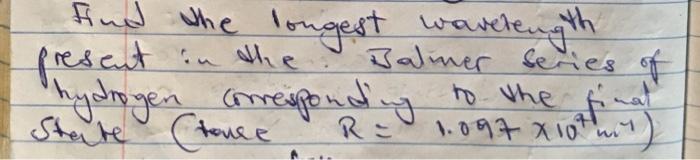 Find the longest wavelength
present in the Balmer series of
hydrogen corresponding to the final
State ( R = 1.097 x 10⁷ m⁻¹)